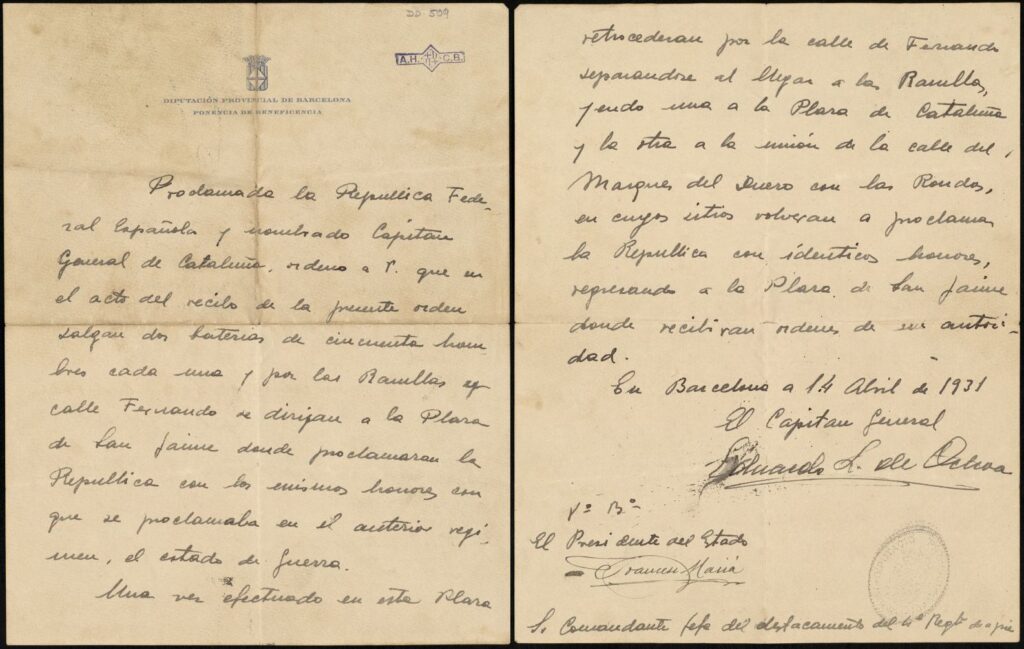 DD 599
A.H. C.B.
DIPUTACIÓN PROVINCIAL DE BARCELONA
PONENCIA DE BENEFICENCIA
Proclamada la Republica Fede-
ral Española y nombrado Capitan
General de Cataluña, ordeno a V. que en
el acto del recibo de la presente orden
salgan dos baterias de cincuenta hom-
bres cada una y por las Ramblas y
calle Fernando se dirijan a la Plaza
de San Jaime donde proclamaran la
Republica con los mismos honores con
que se proclamaba en el anterior regi-
men, el estado de guerra.
Una vez efectuado en esta Plaza
retrocederan por la calle de Fernando
separandose al llegar a las Ramblas,
yendo una a la Plaza de Cataluña
y la otra a la unión de la calle del
Marques del Duero con las Rondas,
en cuyos sitios volveran a proclamar
la Republica con idénticos honores,
regresando a la Plaza de San Jaime
donde recibiran ordenes de su autori-
dad.
En Barcelona a 14 Abril de 1931
El Capitan General
Eduardo L. de Ochoa
Vº Bº
El Presidente del Estado
Francesc Macià
Sr Comandante Jefe del destacamento del 4º Regtº de